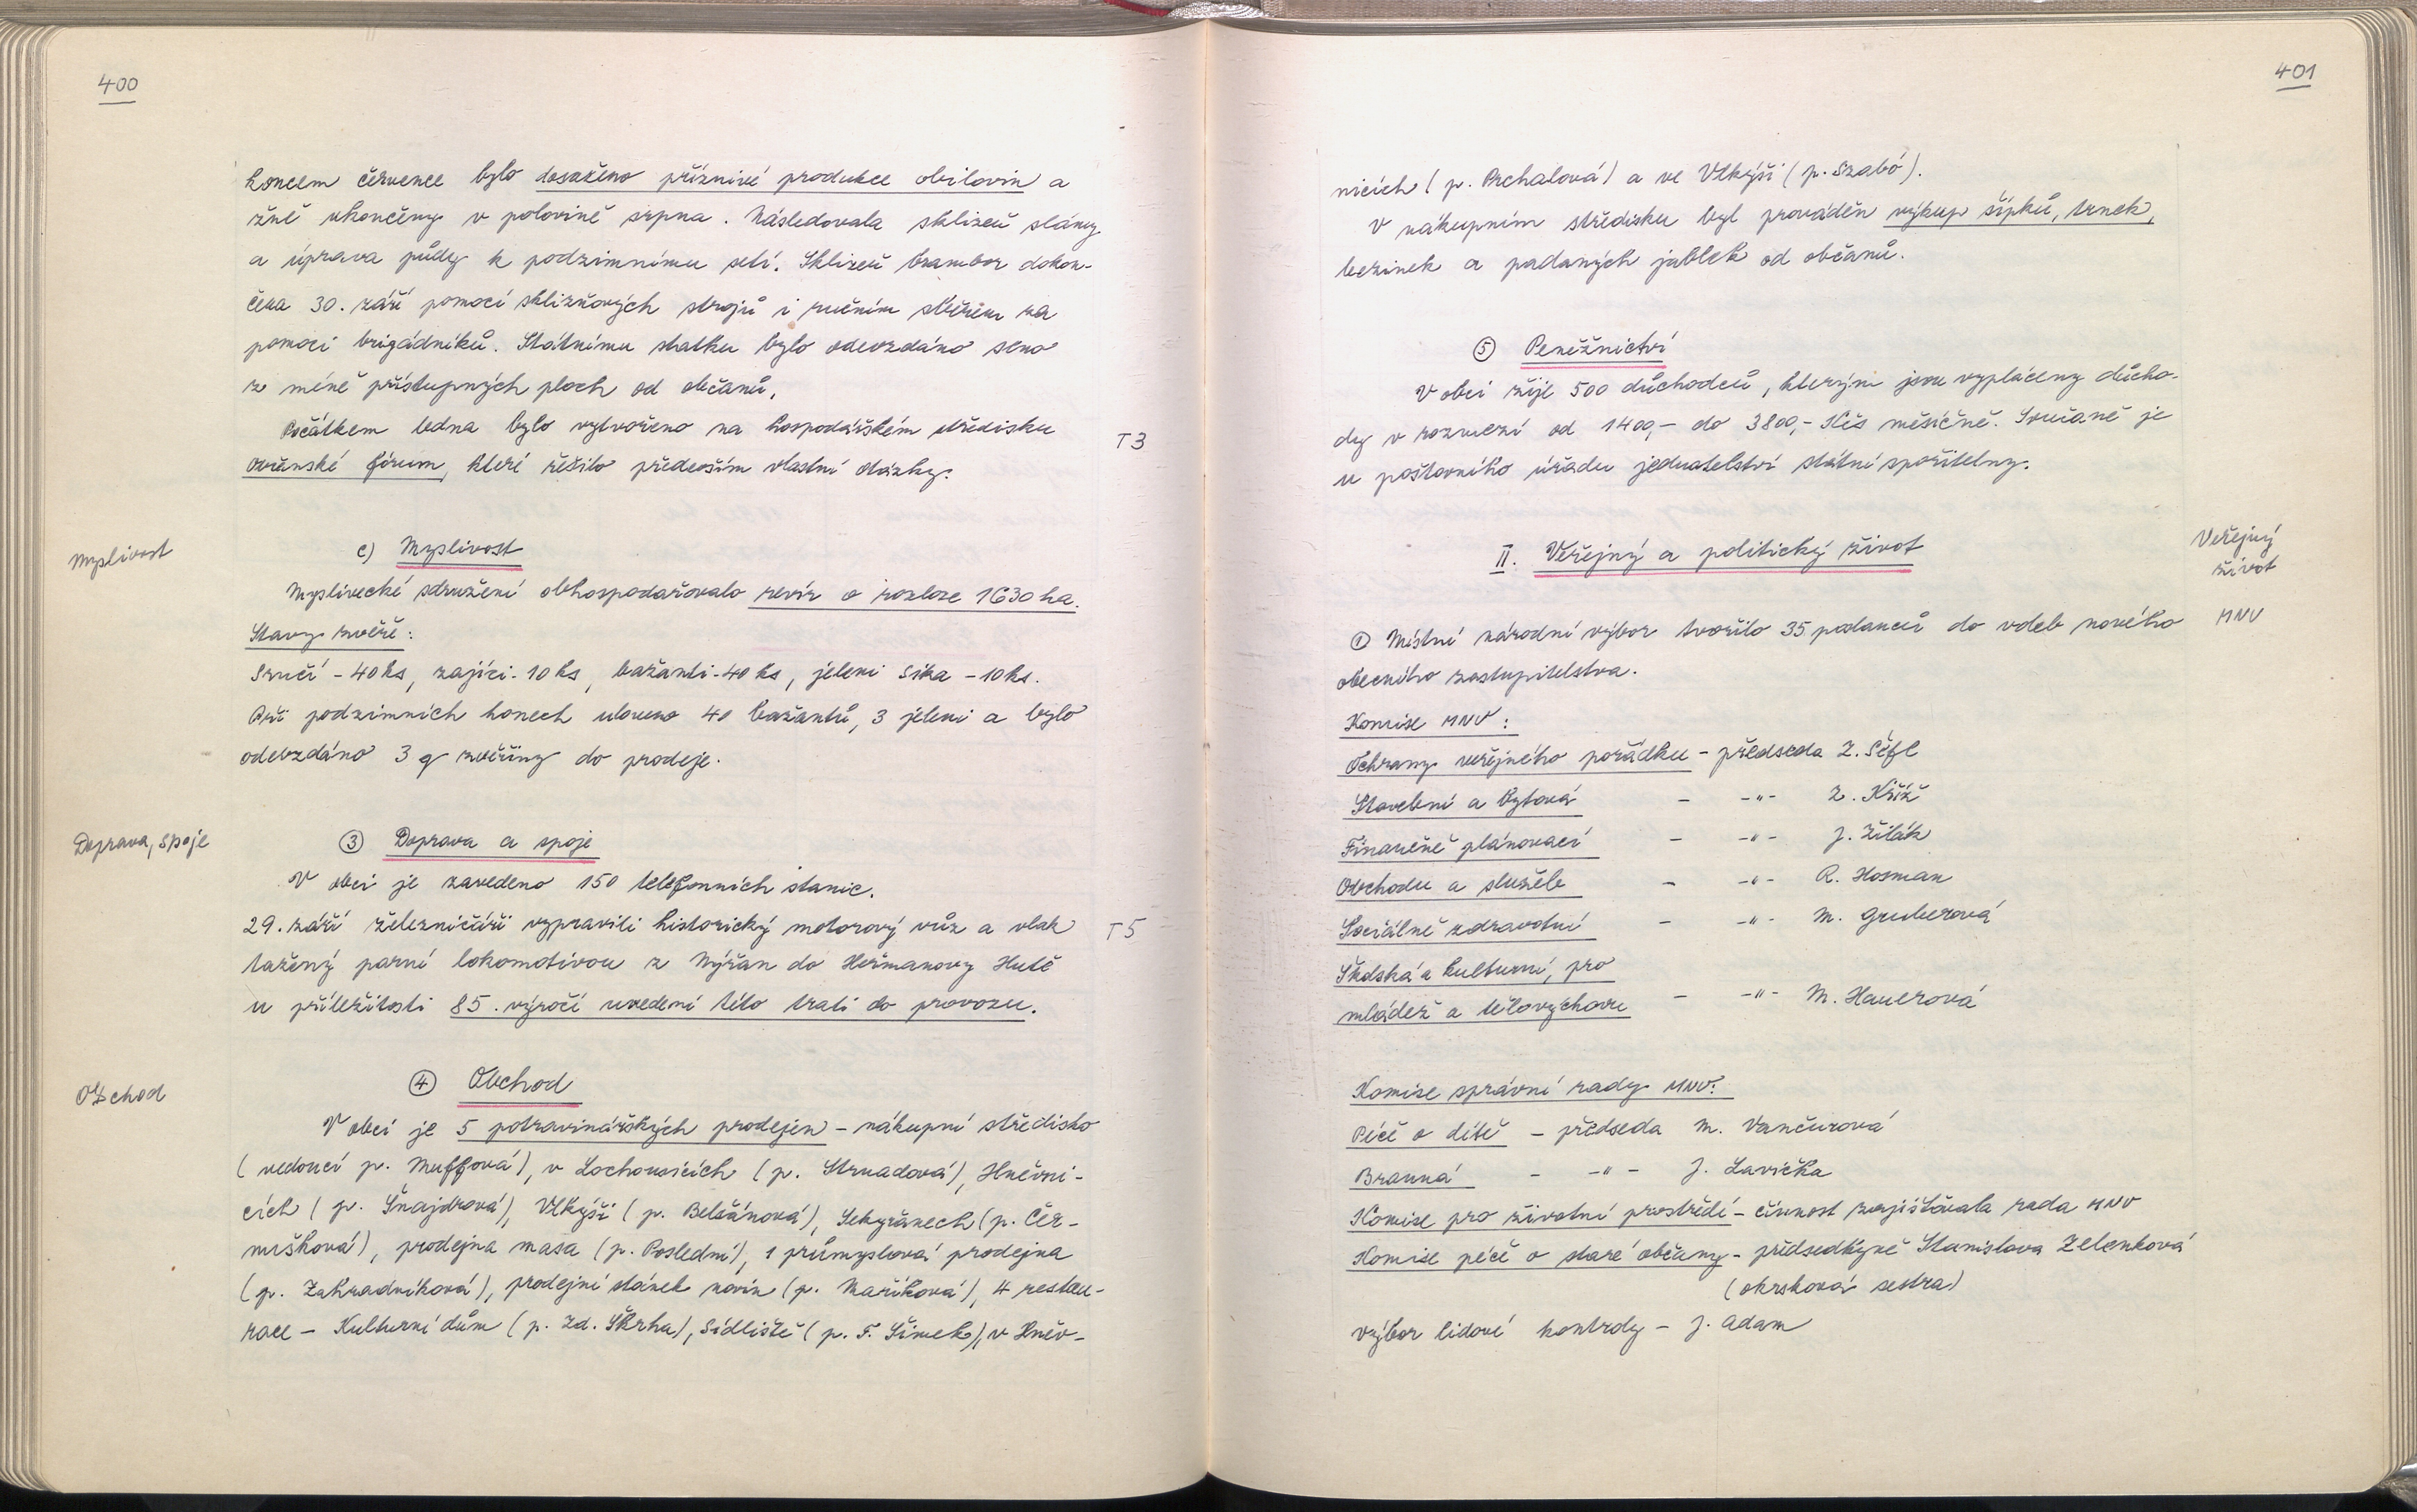 400
koncem července bylo dosaženo příznivé produkce obilovin a
žně ukončeny v polovině srpna. Následovala sklizeň slámy
a úprava půdy k podzimnímu setí. Sklizeň brambor dokon-
čena 30. září pomocí sklizňových strojů i ručním sběrem za
pomoci brigádníků. Státnímu statku bylo odevzdáno seno
z méně přístupných ploch od občanů.
Počátkem ledna bylo vytvořeno na hospodářském středisku
T3
Občanské fórum, které řešilo především vlastní otázky.
Myslivost
c) Myslivost
Myslivecké sdružení obhospodařovalo revír o rozloze 1630 ha.
Stavy zvěře:
Srnčí - 40 ks, zajíci - 10 ks, bažanti - 40 ks, jeleni Sika - 10 ks.
Při podzimních honech uloveno 40 bažantů, 3 jeleni a bylo
odevzdáno 3 q zvěřiny do prodeje.
Doprava, spoje
③ Doprava a spoje
V obci je zavedeno 150 telefonních stanic.
29. září železničáři vypravili historický motorový vůz a vlak
T5
tažený parní lokomotivou z Nýřan do Heřmanovy Hutě
u příležitosti 85. výročí uvedení této trati do provozu.
Obchod
④ Obchod
V obci je 5 potravinářských prodejen - nákupní středisko
(vedoucí p. Muffová), v Lochousicích (p. Strnadová), Hněvni-
cích (p. Šnajdrová), Vlkýši (p. Belšánová), Sekyřanech (p. Čer-
mušková), prodejna masa (p. Poslední), 1 průmyslová prodejna
(p. Zahradníková), prodejní stánek novin (p. Maříková), 4 restau-
race - Kulturní dům (p. Zd. Škrha), Sídliště (p. F. Šimek), v Hněv-
401
nicích (p. Prchalová) a ve Vlkýši (p. Szabó).
V nákupním středisku byl prováděn výkup šípků, trnek,
bezinek a padaných jablek od občanů.
⑤ Peněžnictví
V obci žije 500 důchodců, kterým jsou vypláceny důcho-
dy v rozmezí od 1400,- do 3800,- Kčs měsíčně. Současně je
u poštovního úřadu jednatelství státní spořitelny.
Veřejný
život
II. Veřejný a politický život
① Místní národní výbor tvořilo 35 poslanců do voleb nového
MNV
obecního zastupitelstva.
Komise MNV:
Ochrany veřejného pořádku - předseda Z. Séfl
Stavební a bytová - -"- Z. Kříž
Finančně plánovací - -"- J. Žilák
Obchodu a služeb - -"- R. Hosman
Sociálně zdravotní - -"- M. Gruberová
Školská a kulturní, pro
mládež a tělovýchovu - -"- M. Hauerová
Komise správní rady MNV:
Péče o dítě - předseda M. Vančurová
Branná - -"- J. Lavička
Komise pro životní prostředí - činnost zajišťovala rada MNV
Komise péče o staré občany - předsedkyně Stanislava Zelenková
(okrsková sestra)
Výbor lidové kontroly - J. Adam